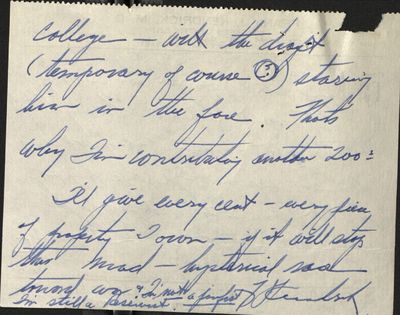 College — with the draft
(temporary of course ?) staring
him in the face. Thats
why I'm contributing another 200=
I'll give every cent — every piece
of property I own — if it will stop
this mad — hysterical race
toward war.
I'm still a